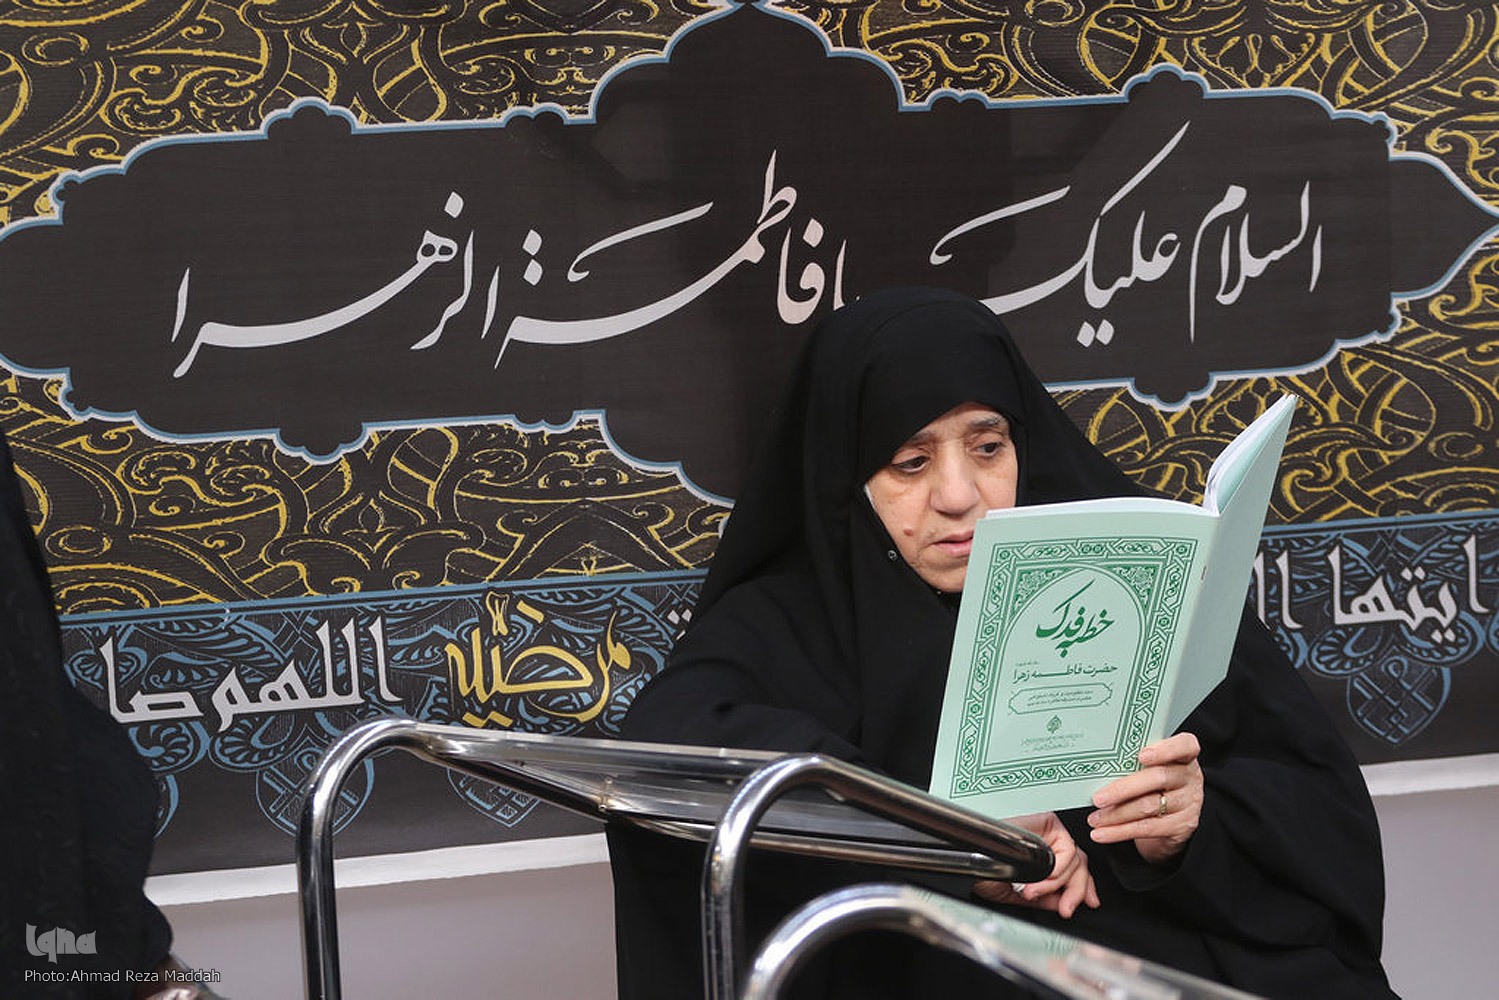 السلام علیک یا فاطمة الزهرا
ایتها ال
مرضیه
اللهم صل
خطبه فدک
حضرت فاطمه زهرا
Iqna
Photo:Ahmad Reza Maddah